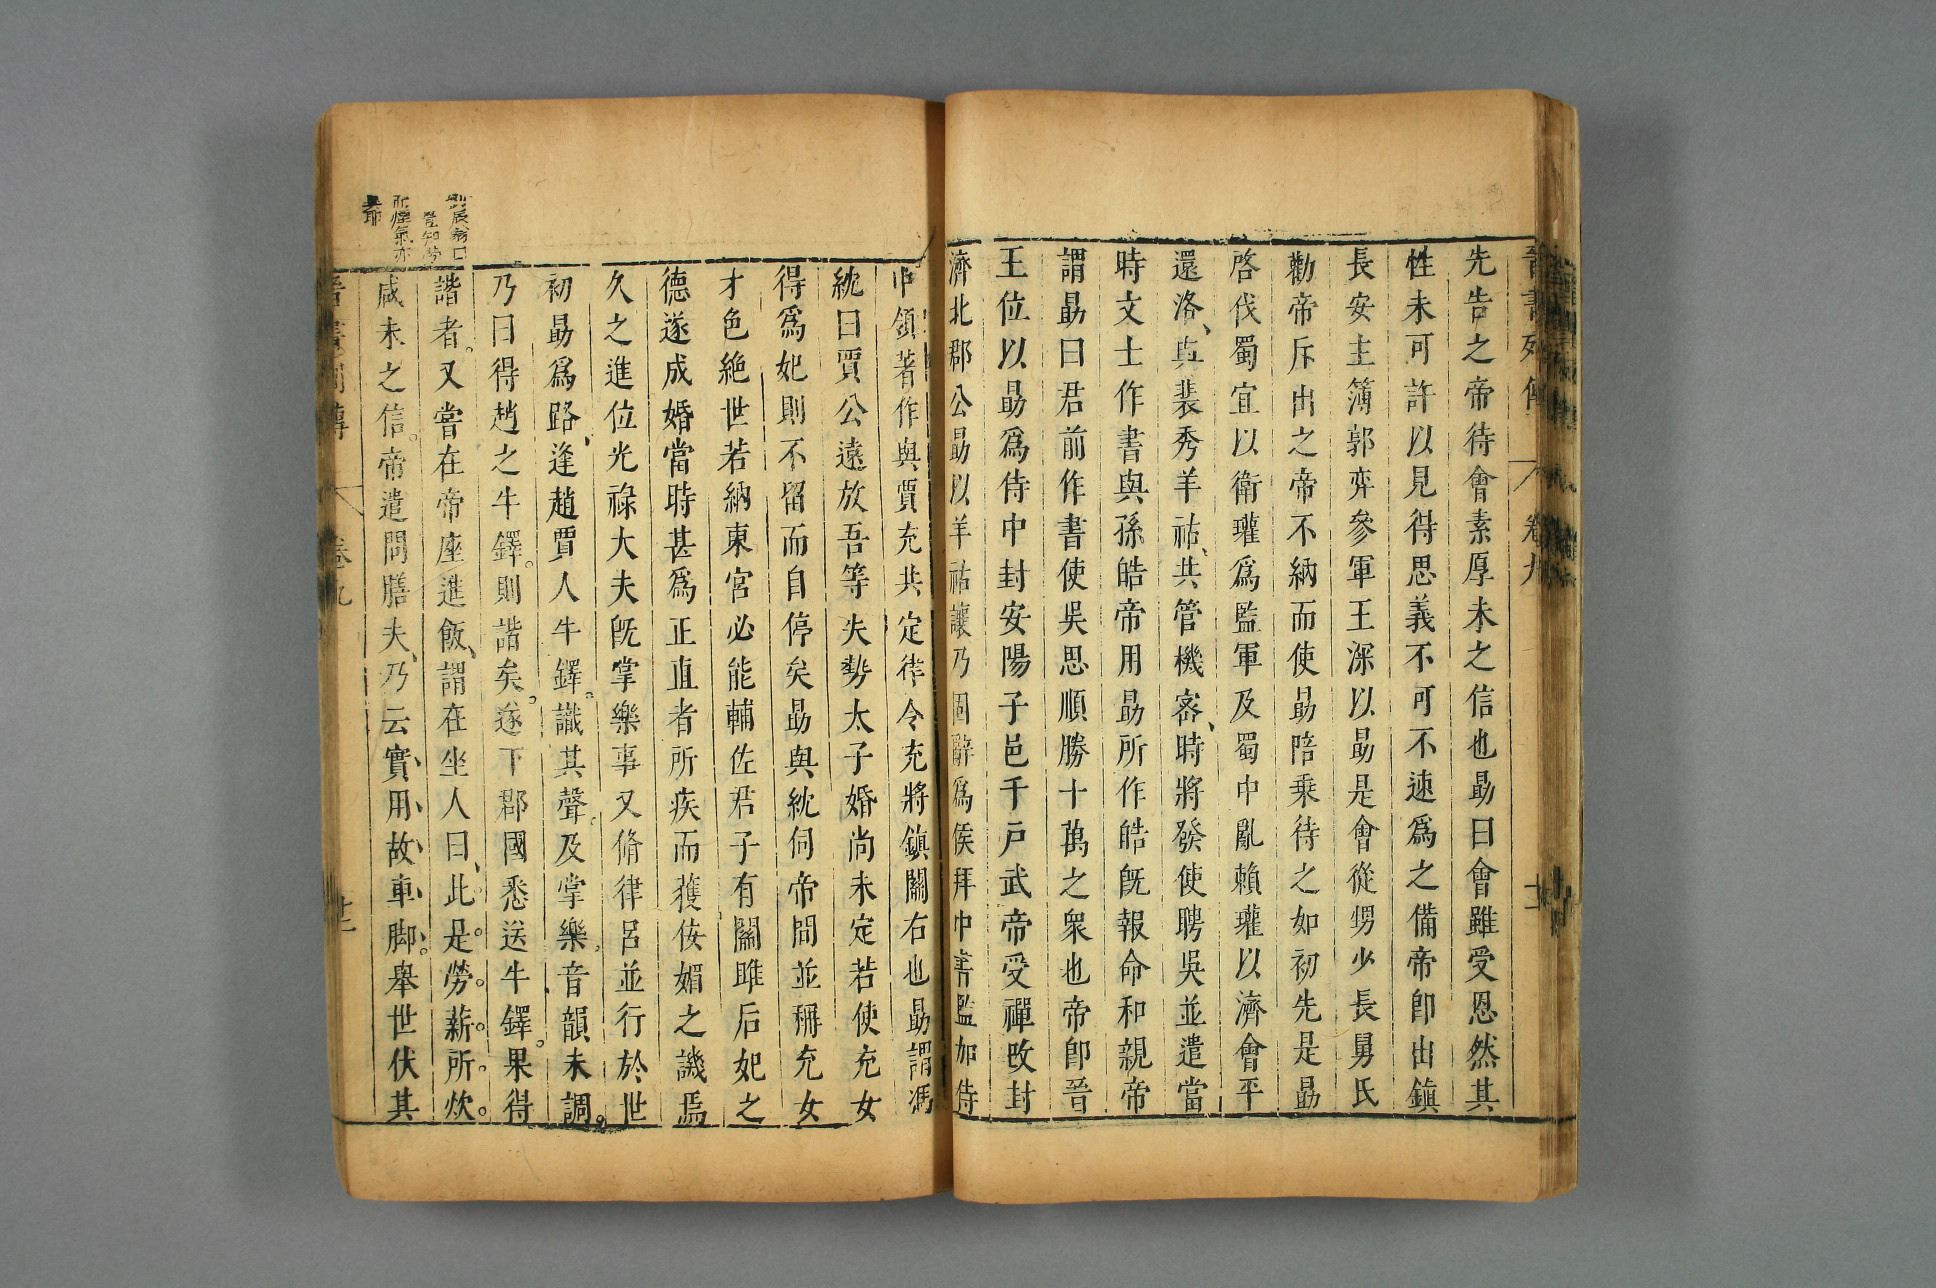 晉書列傳 卷九 十二
先告之帝待會素厚未之信也勗曰會雖受恩然其
性未可許以見得思義不可不速爲之備帝卽出鎮
長安主簿郭弈參軍王深以勗是會從甥少長舅氏
勸帝斥出之帝不納而使勗陪乗待之如初先是勗
啓伐蜀宜以衛瓘爲監軍及蜀中亂賴瓘以濟會平
還洛、與裴秀羊祜、共管機密、時將發使聘吳並遣當
時文士作書與孫皓帝用勗所作皓旣報命和親帝
謂勗曰君前作書使吳思順勝十萬之衆也帝卽晉
王位以勗爲侍中封安陽子邑千戶武帝受禪改封
濟北郡公勗以羊祜讓乃固辭爲侯拜中書監加侍
中領著作與賈充共定律令充將鎮關右也勗謂馮
紞曰賈公遠放吾等失勢太子婚尚未定若使充女
得爲妃則不留而自停矣勗與紞伺帝間並稱充女
才色絶世若納東宮必能輔佐君子有關雎后妃之
德遂成婚當時甚爲正直者所疾而獲佞媚之譏焉
久之進位光祿大夫旣掌樂事又脩律呂並行於世
初勗爲路、逢趙賈人牛鐸。識其聲。及掌樂。音韻未調。
乃曰得趙之牛鐸。則諧矣。遂下郡國悉送牛鐸。果得
諧者。又嘗在帝座進飯、謂在坐人曰、此是勞薪所炊。
咸未之信。帝遣問膳夫、乃云實用故車脚。舉世伏其
晉書列傳 卷九